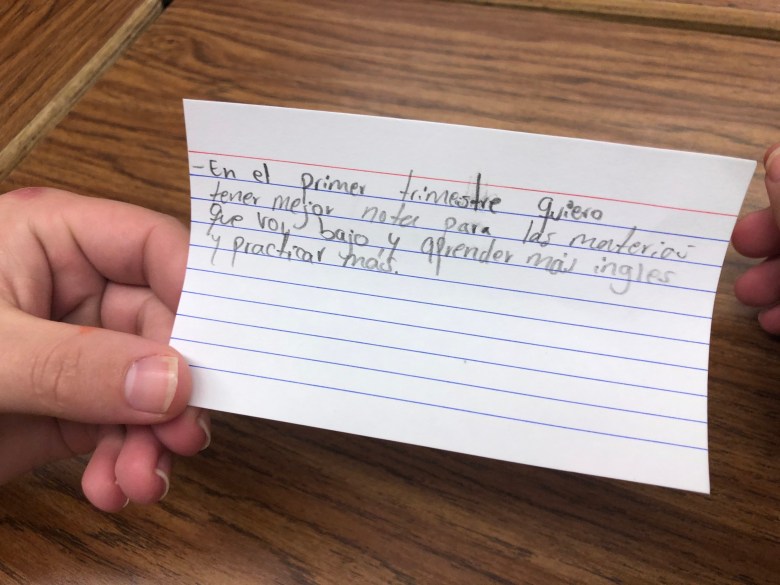 -En el primer trimestre quiero
tener mejor nota para las materias
que voy bajo y aprender más ingles
y practicar mas.